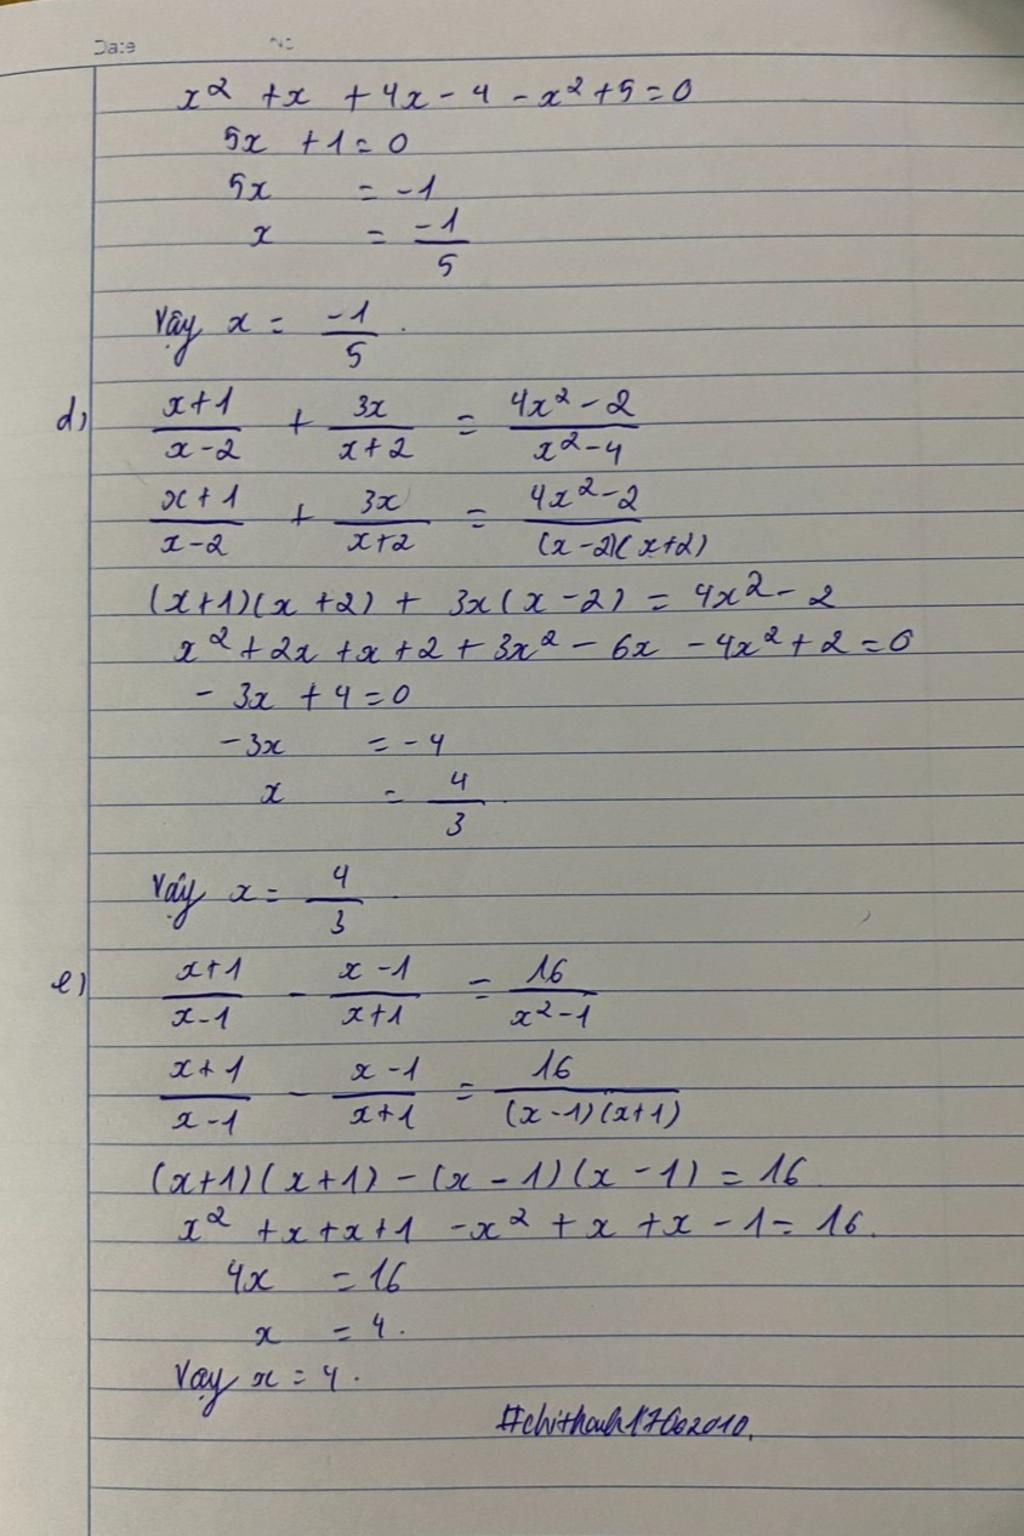 Date No
x² + x + 4x - 4 - x² + 5 = 0
5x + 1 = 0
5x = -1
x = -1/5
Vậy x = -1/5.
d) (x+1)/(x-2) + 3x/(x+2) = (4x²-2)/(x²-4)
(x+1)/(x-2) + 3x/(x+2) = (4x²-2)/((x-2)(x+2))
(x+1)(x+2) + 3x(x-2) = 4x² - 2
x² + 2x + x + 2 + 3x² - 6x - 4x² + 2 = 0
- 3x + 4 = 0
-3x = -4
x = 4/3.
Vậy x = 4/3.
e) (x+1)/(x-1) - (x-1)/(x+1) = 16/(x²-1)
(x+1)/(x-1) - (x-1)/(x+1) = 16/((x-1)(x+1))
(x+1)(x+1) - (x-1)(x-1) = 16
x² + x + x + 1 - x² + x + x - 1 = 16.
4x = 16
x = 4.
Vậy x = 4.